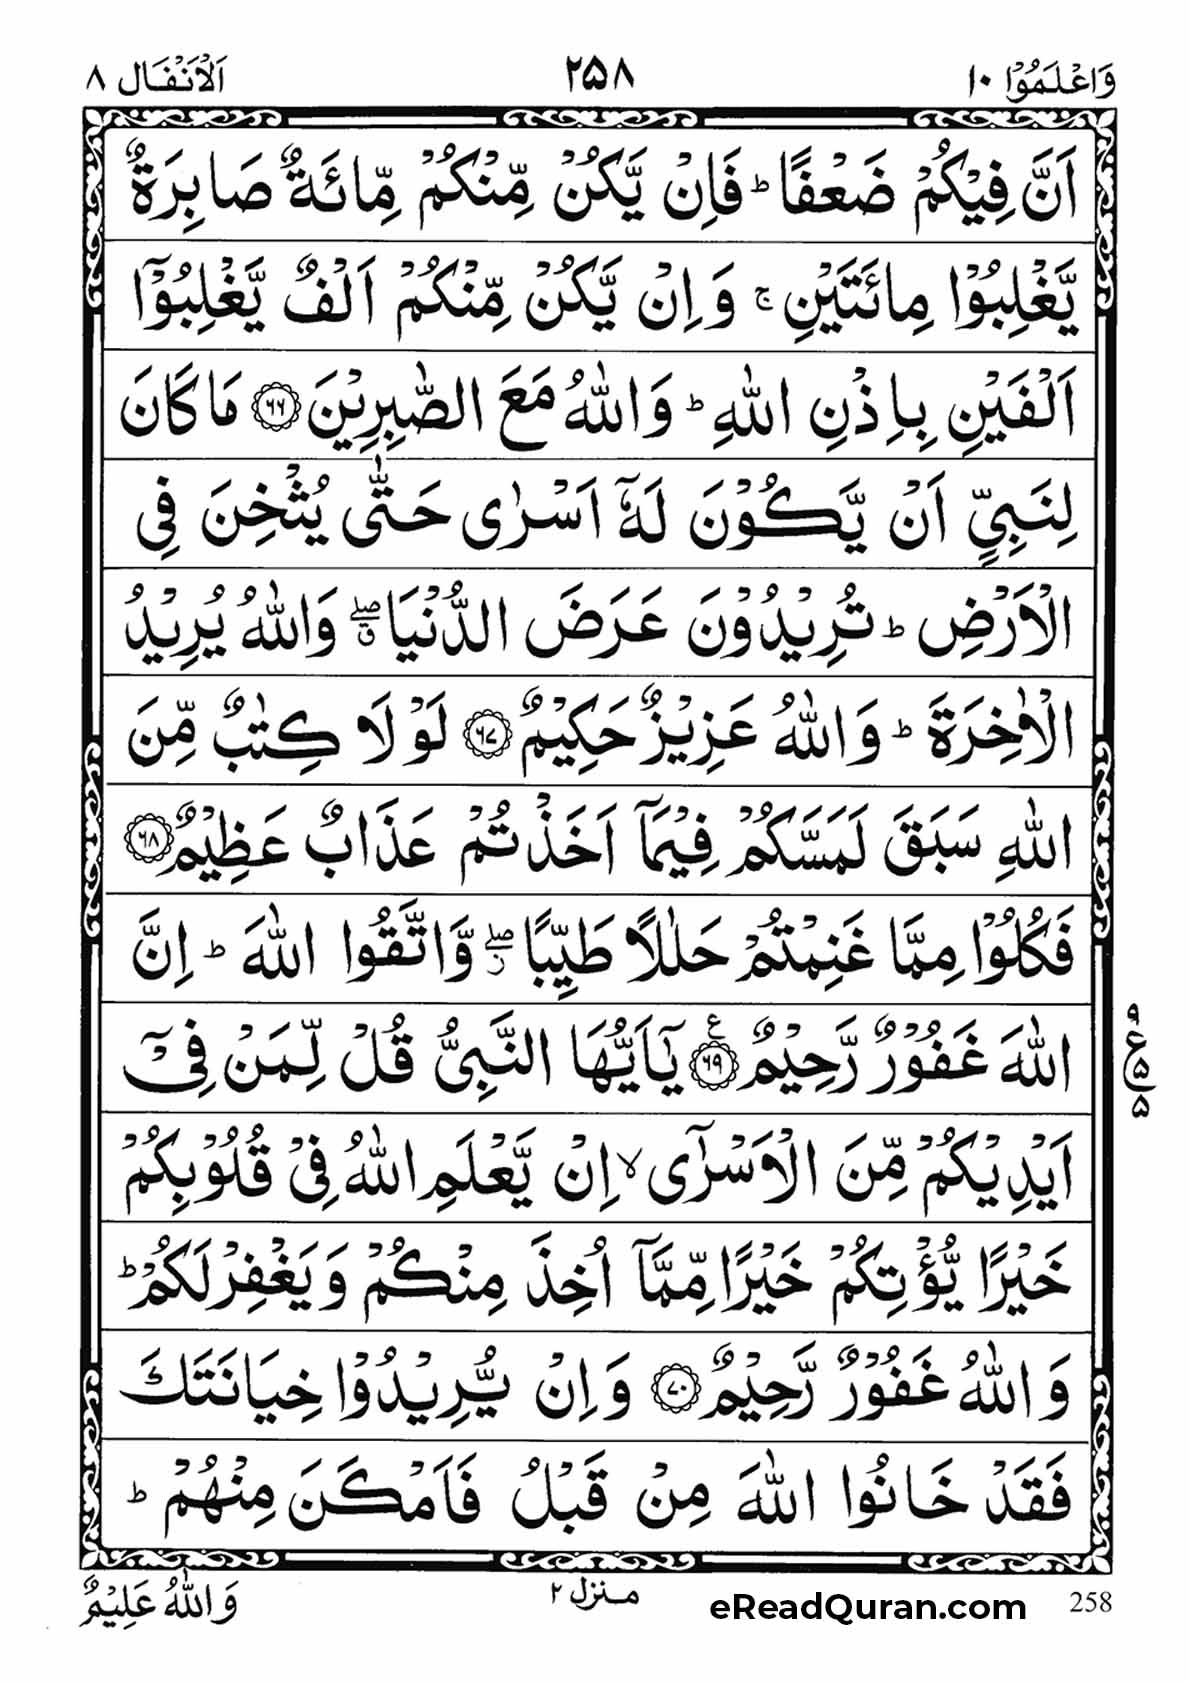 وَاعْلَمُوْٓا ١٠ ٢٥٨ اَلْاَنْفَال ٨
اَنَّ فِيْكُمْ ضَعْفًا ؕ فَاِنْ يَّكُنْ مِّنْكُمْ مِّائَةٌ صَابِرَةٌ
يَّغْلِبُوْا مِائَتَيْنِ ۚ وَاِنْ يَّكُنْ مِّنْكُمْ اَلْفٌ يَّغْلِبُوْٓا
اَلْفَيْنِ بِاِذْنِ اللّٰهِ ؕ وَاللّٰهُ مَعَ الصّٰبِرِيْنَ ﴿٦٦﴾ مَا كَانَ
لِنَبِيٍّ اَنْ يَّكُوْنَ لَهٗٓ اَسْرٰى حَتّٰى يُثْخِنَ فِى
الْاَرْضِ ؕ تُرِيْدُوْنَ عَرَضَ الدُّنْيَا ۖ ق وَاللّٰهُ يُرِيْدُ
الْاٰخِرَةَ ؕ وَاللّٰهُ عَزِيْزٌ حَكِيْمٌ ﴿٦٧﴾ لَوْ لَا كِتٰبٌ مِّنَ
اللّٰهِ سَبَقَ لَمَسَّكُمْ فِيْمَآ اَخَذْتُمْ عَذَابٌ عَظِيْمٌ ﴿٦٨﴾
فَكُلُوْا مِمَّا غَنِمْتُمْ حَلٰلًا طَيِّبًا ۖ ز وَّاتَّقُوا اللّٰهَ ؕ اِنَّ
اللّٰهَ غَفُوْرٌ رَّحِيْمٌ ﴿٦٩﴾ ع يٰٓاَيُّهَا النَّبِىُّ قُلْ لِّمَنْ فِىْٓ
٩ ع ٥ ٥
اَيْدِيْكُمْ مِّنَ الْاَسْرٰٓى ۙ اِنْ يَّعْلَمِ اللّٰهُ فِىْ قُلُوْبِكُمْ
خَيْرًا يُّؤْتِكُمْ خَيْرًا مِّمَّآ اُخِذَ مِنْكُمْ وَيَغْفِرْ لَكُمْ ؕ
وَاللّٰهُ غَفُوْرٌ رَّحِيْمٌ ﴿٧٠﴾ وَاِنْ يُّرِيْدُوْا خِيَانَتَكَ
فَقَدْ خَانُوا اللّٰهَ مِنْ قَبْلُ فَاَمْكَنَ مِنْهُمْ ؕ
258 eReadQuran.com منزل ٢ وَاللّٰهُ عَلِيْمٌ